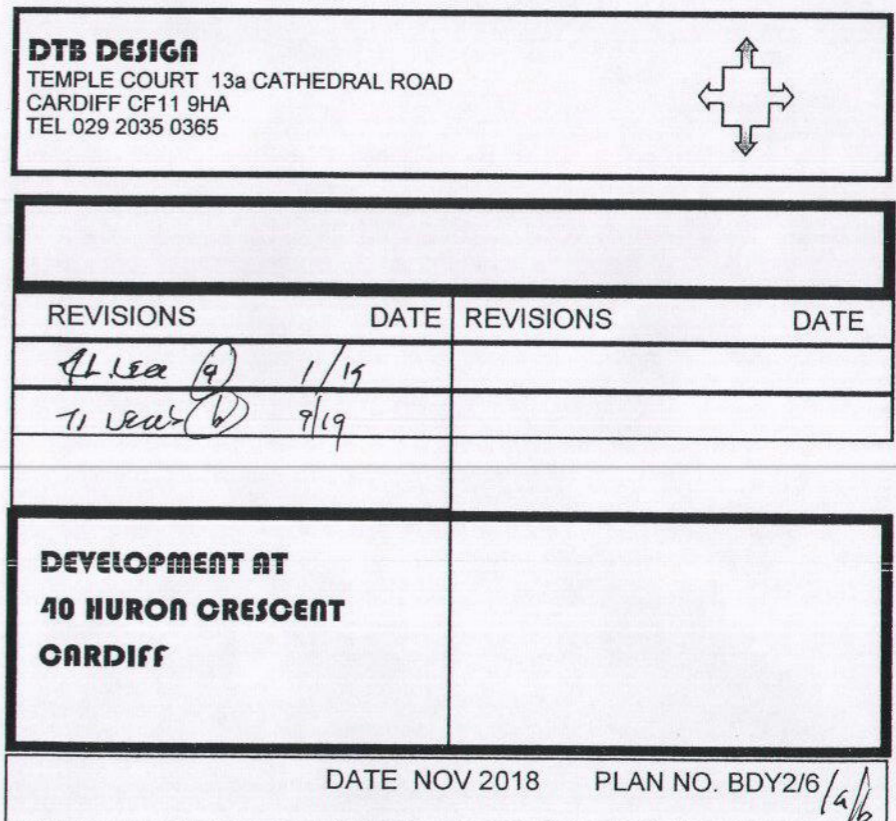 DTB DESIGN
TEMPLE COURT 13a CATHEDRAL ROAD
CARDIFF CF11 9HA
TEL 029 2035 0365
REVISIONS DATE REVISIONS DATE
(a) 1/19
(b) 9/19
DEVELOPMENT AT
40 HURON CRESCENT
CARDIFF
DATE NOV 2018 PLAN NO. BDY2/6/a/b